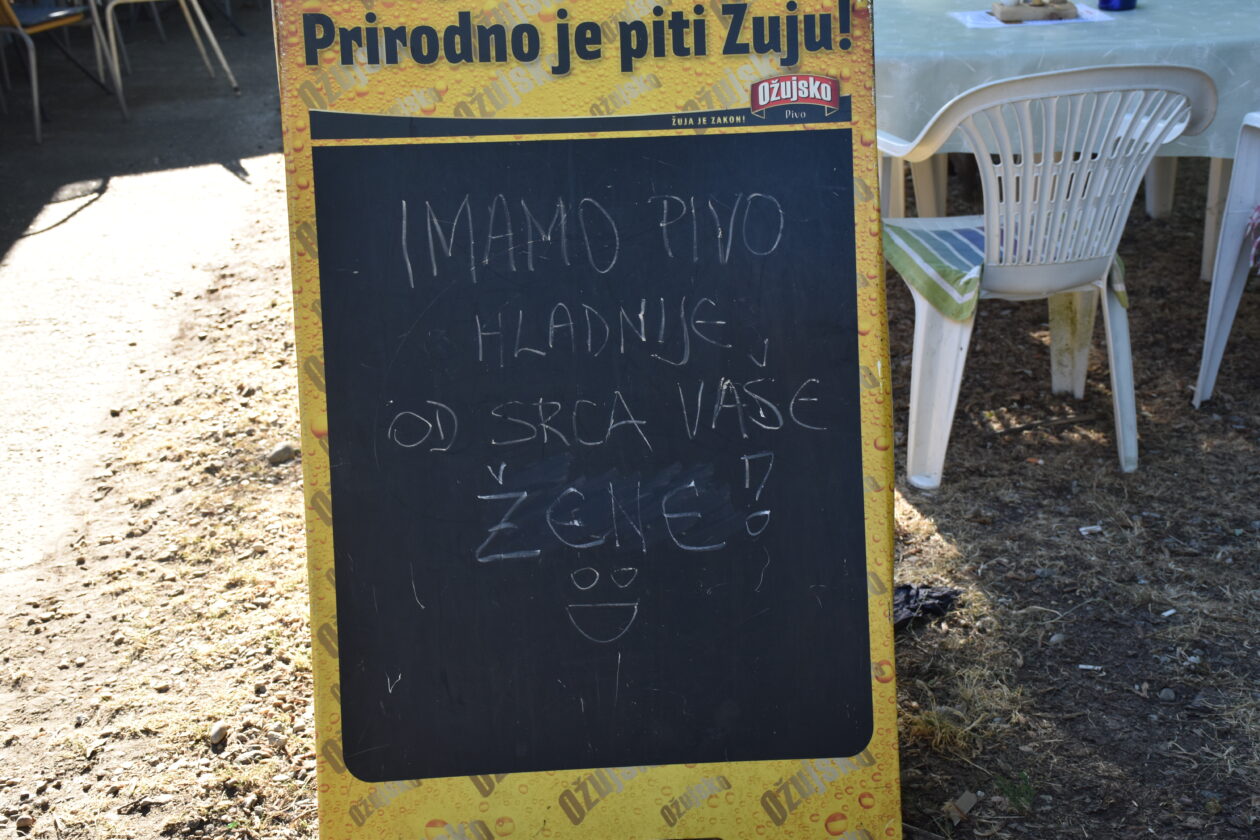 Prirodno je piti Žuju!
Ožujsko
Pivo
ŽUJA JE ZAKON!
IMAMO PIVO
HLADNIJE
OD SRCA VAŠE
ŽENE!
Ožujsko Ožujsko Ožujsko